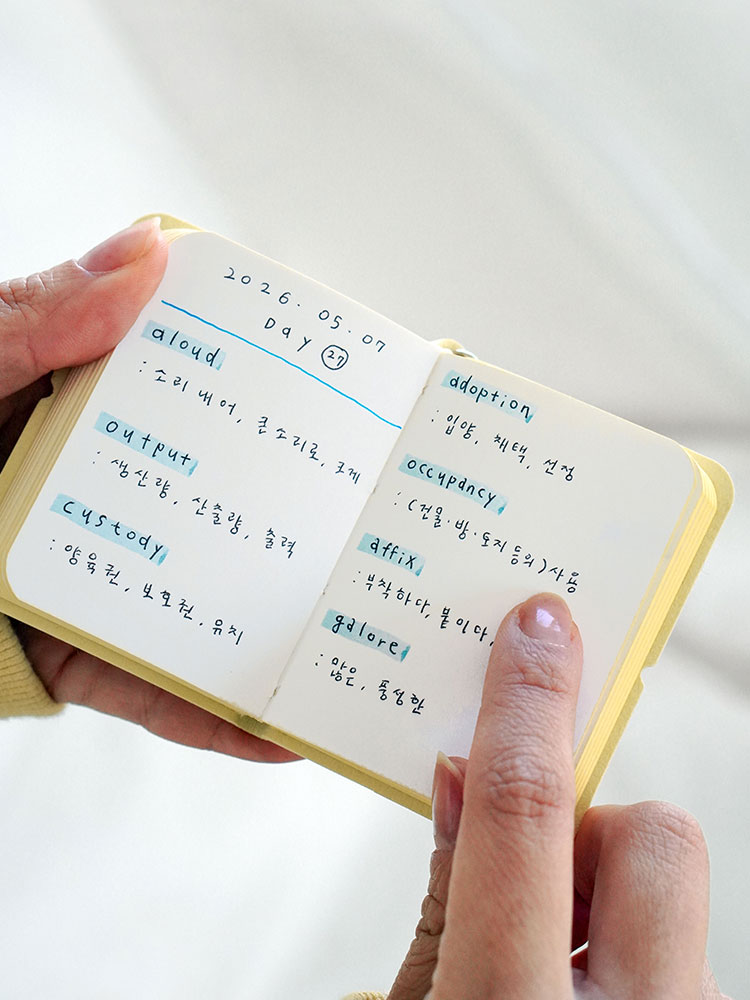 2026. 05. 07
Day 27
aloud
: 소리 내어, 큰소리로, 크게
output
: 생산량, 산출량, 출력
custody
: 양육권, 보호권, 유치
adoption
: 입양, 채택, 선정
occupancy
: (건물·방·토지 등의) 사용
affix
: 부착하다, 붙이다,
galore
: 많은, 풍성한